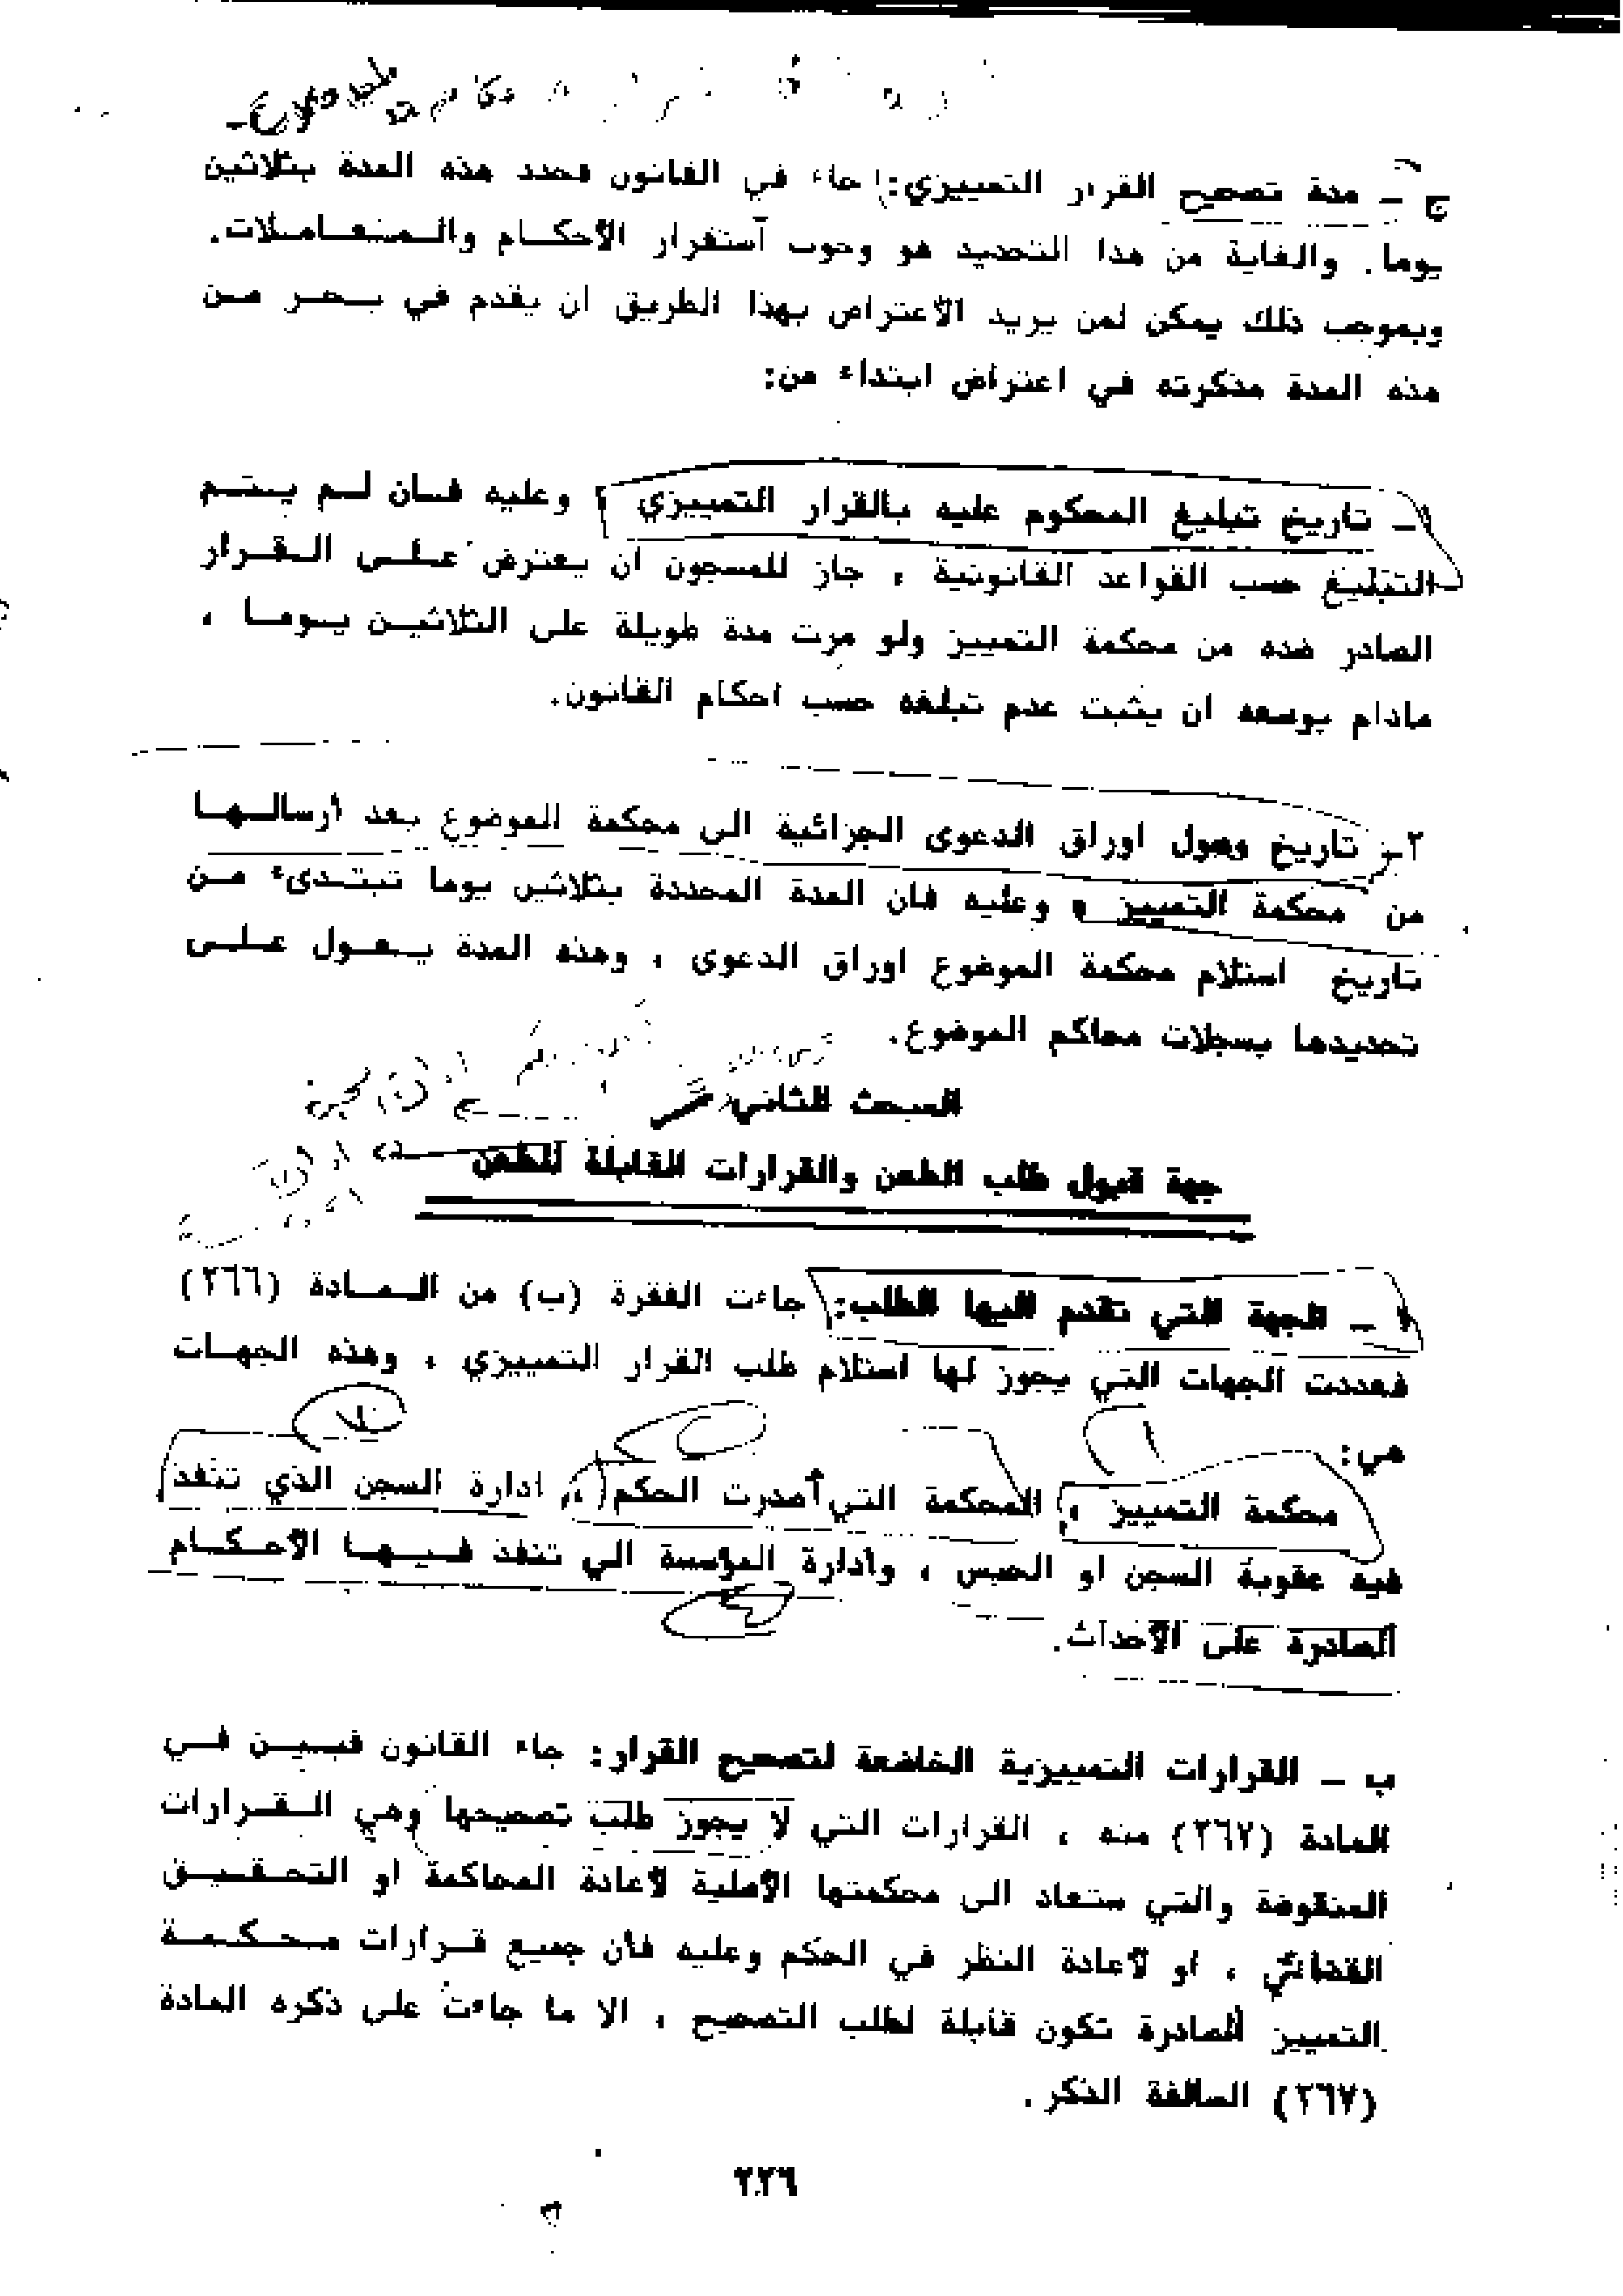 ج - مدة تصحيح القرار التمييزي: جاء في القانون فحدد هذه المدة بثلاثين
يوما. والغاية من هذا التحديد هو وجوب آستقرار الأحكـام والـمـتعـامـلات.
وبموجب ذلك يمكن لمن يريد الأعتراض بهذا الطريق ان يقدم في بـحـر مـن
هذه المدة مذكرته في اعتراض ابتداء من:
١- تاريخ تبليغ المحكوم عليه بالقرار التمييزي ، وعليه فـان لـم يـتـم
التبليغ حسب القواعد القانونية ، جاز للمسجون ان يعترض عـلـى الـقـرار
الصادر ضده من محكمة التمييز ولو مرت مدة طويلة على الثلاثيـن يـومـا ،
مادام بوسعه ان يثبت عدم تبلغه حسب احكام القانون.
٢- تاريخ وصول اوراق الدعوى الجزائية الى محكمة الموضوع بعد أرسالـهـا
من محكمة التمييز ، وعليه فان المدة المحددة بثلاثين يوما تبتـدىء مـن
تاريخ استلام محكمة الموضوع اوراق الدعوى ، وهذه المدة يـعـول عـلـى
تحديدها بسجلات محاكم الموضوع.
المبحث الثاني
جهة قبول طلب الطعن والقرارات القابلة للطعن
أ - الجهة التي تقدم اليها الطلب: جاءت الفقرة (ب) من الـمـادة (٢٦٦)
فعددت الجهات التي يجوز لها استلام طلب القرار التمييزي ، وهذه الجهـات
هي:
محكمة التمييز ، المحكمة التي أصدرت الحكم ، ادارة السجن الذي تنفذ
فيه عقوبة السجن او الحبس ، وأدارة المؤسسة الي تنفذ فـيـهـا الأحـكـام
الصادرة على الأحداث.
ب - القرارات التمييزية الخاضعة لتصحيح القرار: جاء القانون فبـيـن فـي
المادة (٢٦٧) منه ، القرارات التي لا يجوز طلب تصحيحها وهي الـقـرارات
المنقوضة والتي ستعاد الى محكمتها الأصلية لأعادة المحاكمة او التحـقـيـق
القضائي ، او لأعادة النظر في الحكم وعليه فأن جميع قـرارات مـحـكـمـة
التمييز الصادرة تكون قابلة لطلب التصحيح ، الا ما جاءت على ذكره المادة
(٢٦٧) السالفة الذكر.
٢٢٦